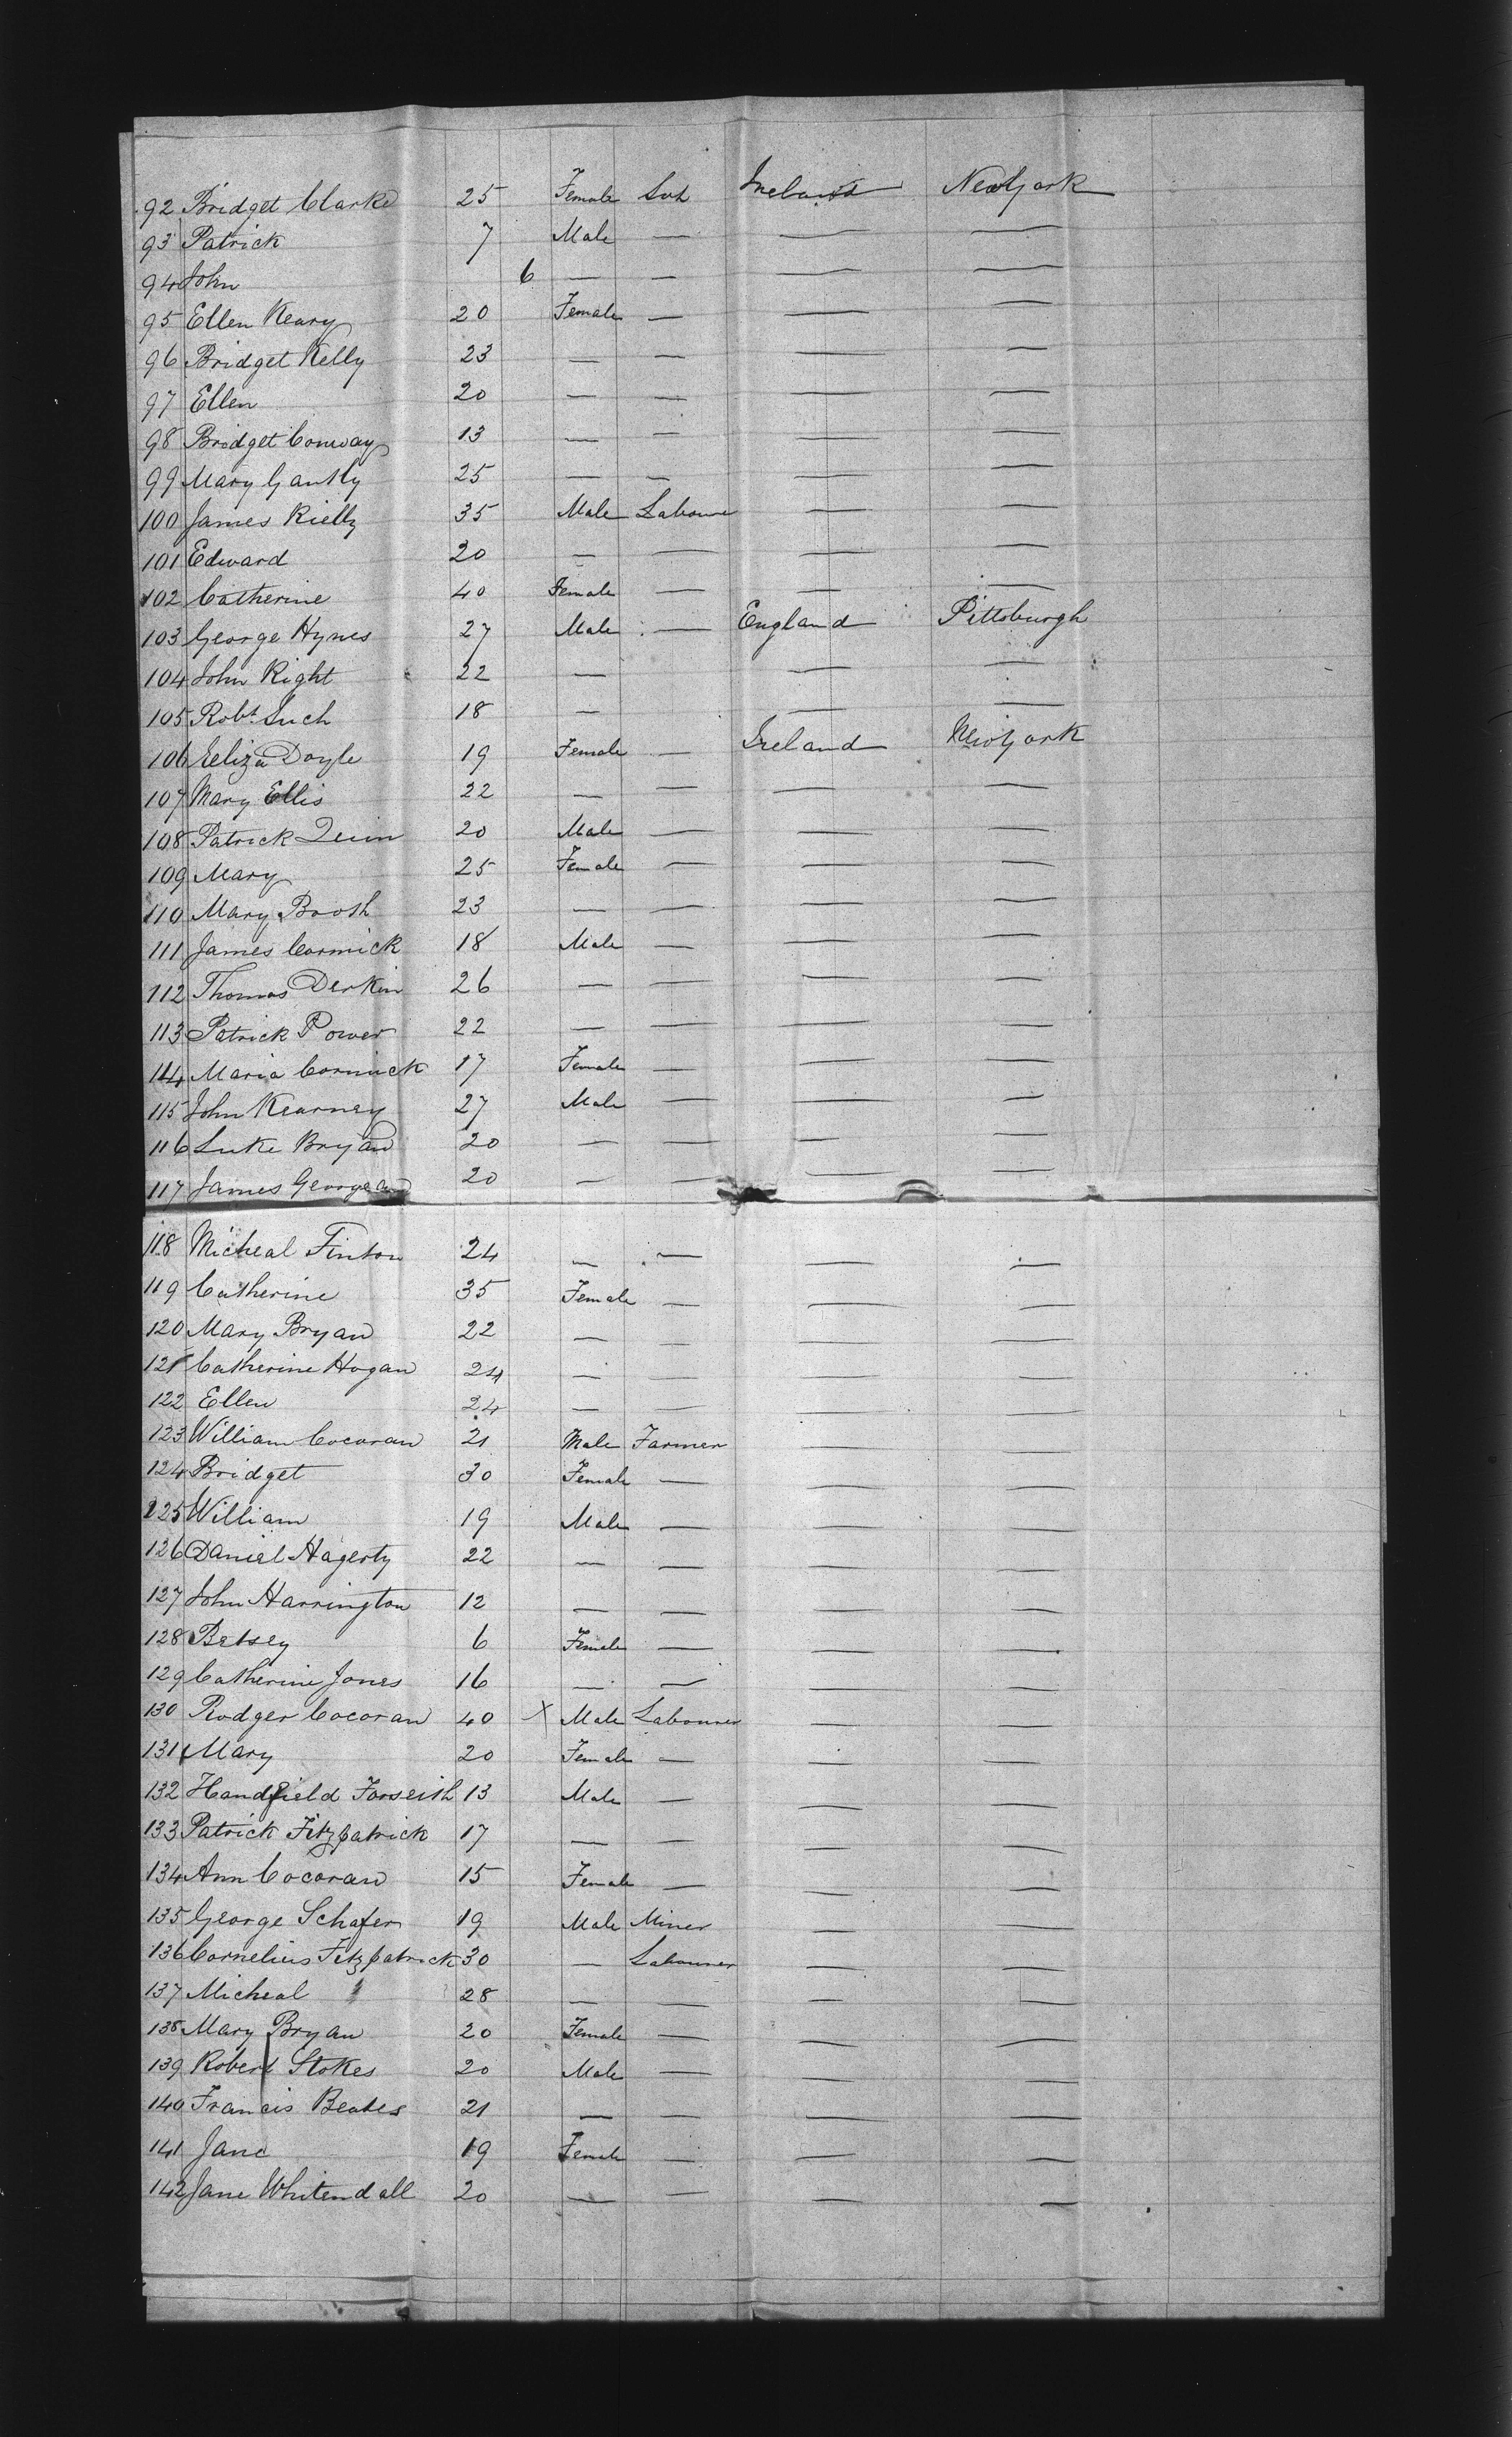 92 Bridget Clarke 25 Female Ireland New York
93 Patrick 7 Male — — —
94 John 6 — — — —
95 Ellen Keary 20 Female — — —
96 Bridget Kelly 23 — — — —
97 Ellen 20 — — — —
98 Bridget Conway 13 — — — —
99 Mary Gantly 25 — — — —
100 James Rielly 35 Male Laboure — —
101 Edward 20 — — — —
102 Catherine 40 Female — — —
103 George Hynes 27 Male — England Pittsburgh
104 John Right 22 — — —
105 Robt Such 18 — — —
106 Eeliza Doyle 19 Female — Ireland New York
107 Mary Ellis 22 — — — —
108 Patrick Quin 20 Male — — —
109 Mary 25 Female — — —
110 Mary Booth 23 — — — —
111 James Cormick 18 Male — — —
112 Thomas Derkin 26 — — — —
113 Patrick Power 22 — — — —
114 Maria Cormick 17 Female — — —
115 John Kearney 27 Male — — —
116 Luke Bryan 20 — — — —
117 James Georgean 20 — — — —
118 Micheal Finton 24 — — — —
119 Catherine 35 Female — — —
120 Mary Bryan 22 — — — —
121 Catherine Hogan 24 — — — —
122 Ellen 24 — — — —
123 William Cocoran 21 Male Farmer — —
124 Bridget 30 Female — — —
125 William 19 Male — — —
126 Daniel Hagerty 22 — — — —
127 John Harrington 12 — — — —
128 Betsey 6 Female — — —
129 Catherine Jones 16 — — — —
130 Rodger Cocoran 40 X Male Labourer — —
131 Mary 20 Female — — —
132 Handfield Forseith 13 Male — — —
133 Patrick Fitzpatrick 17 — — — —
134 Ann Cocoran 15 Female — — —
135 George Schafer 19 Male Miner — —
136 Cornelius Fitzpatrick 30 — Labourer — —
137 Micheal " 28 — — — —
138 Mary Bryan 20 Female — — —
139 Robert Stokes 20 Male — — —
140 Francis Beates 21 — — — —
141 Jane 19 Female — — —
142 Jane Whitendall 20 — — — —